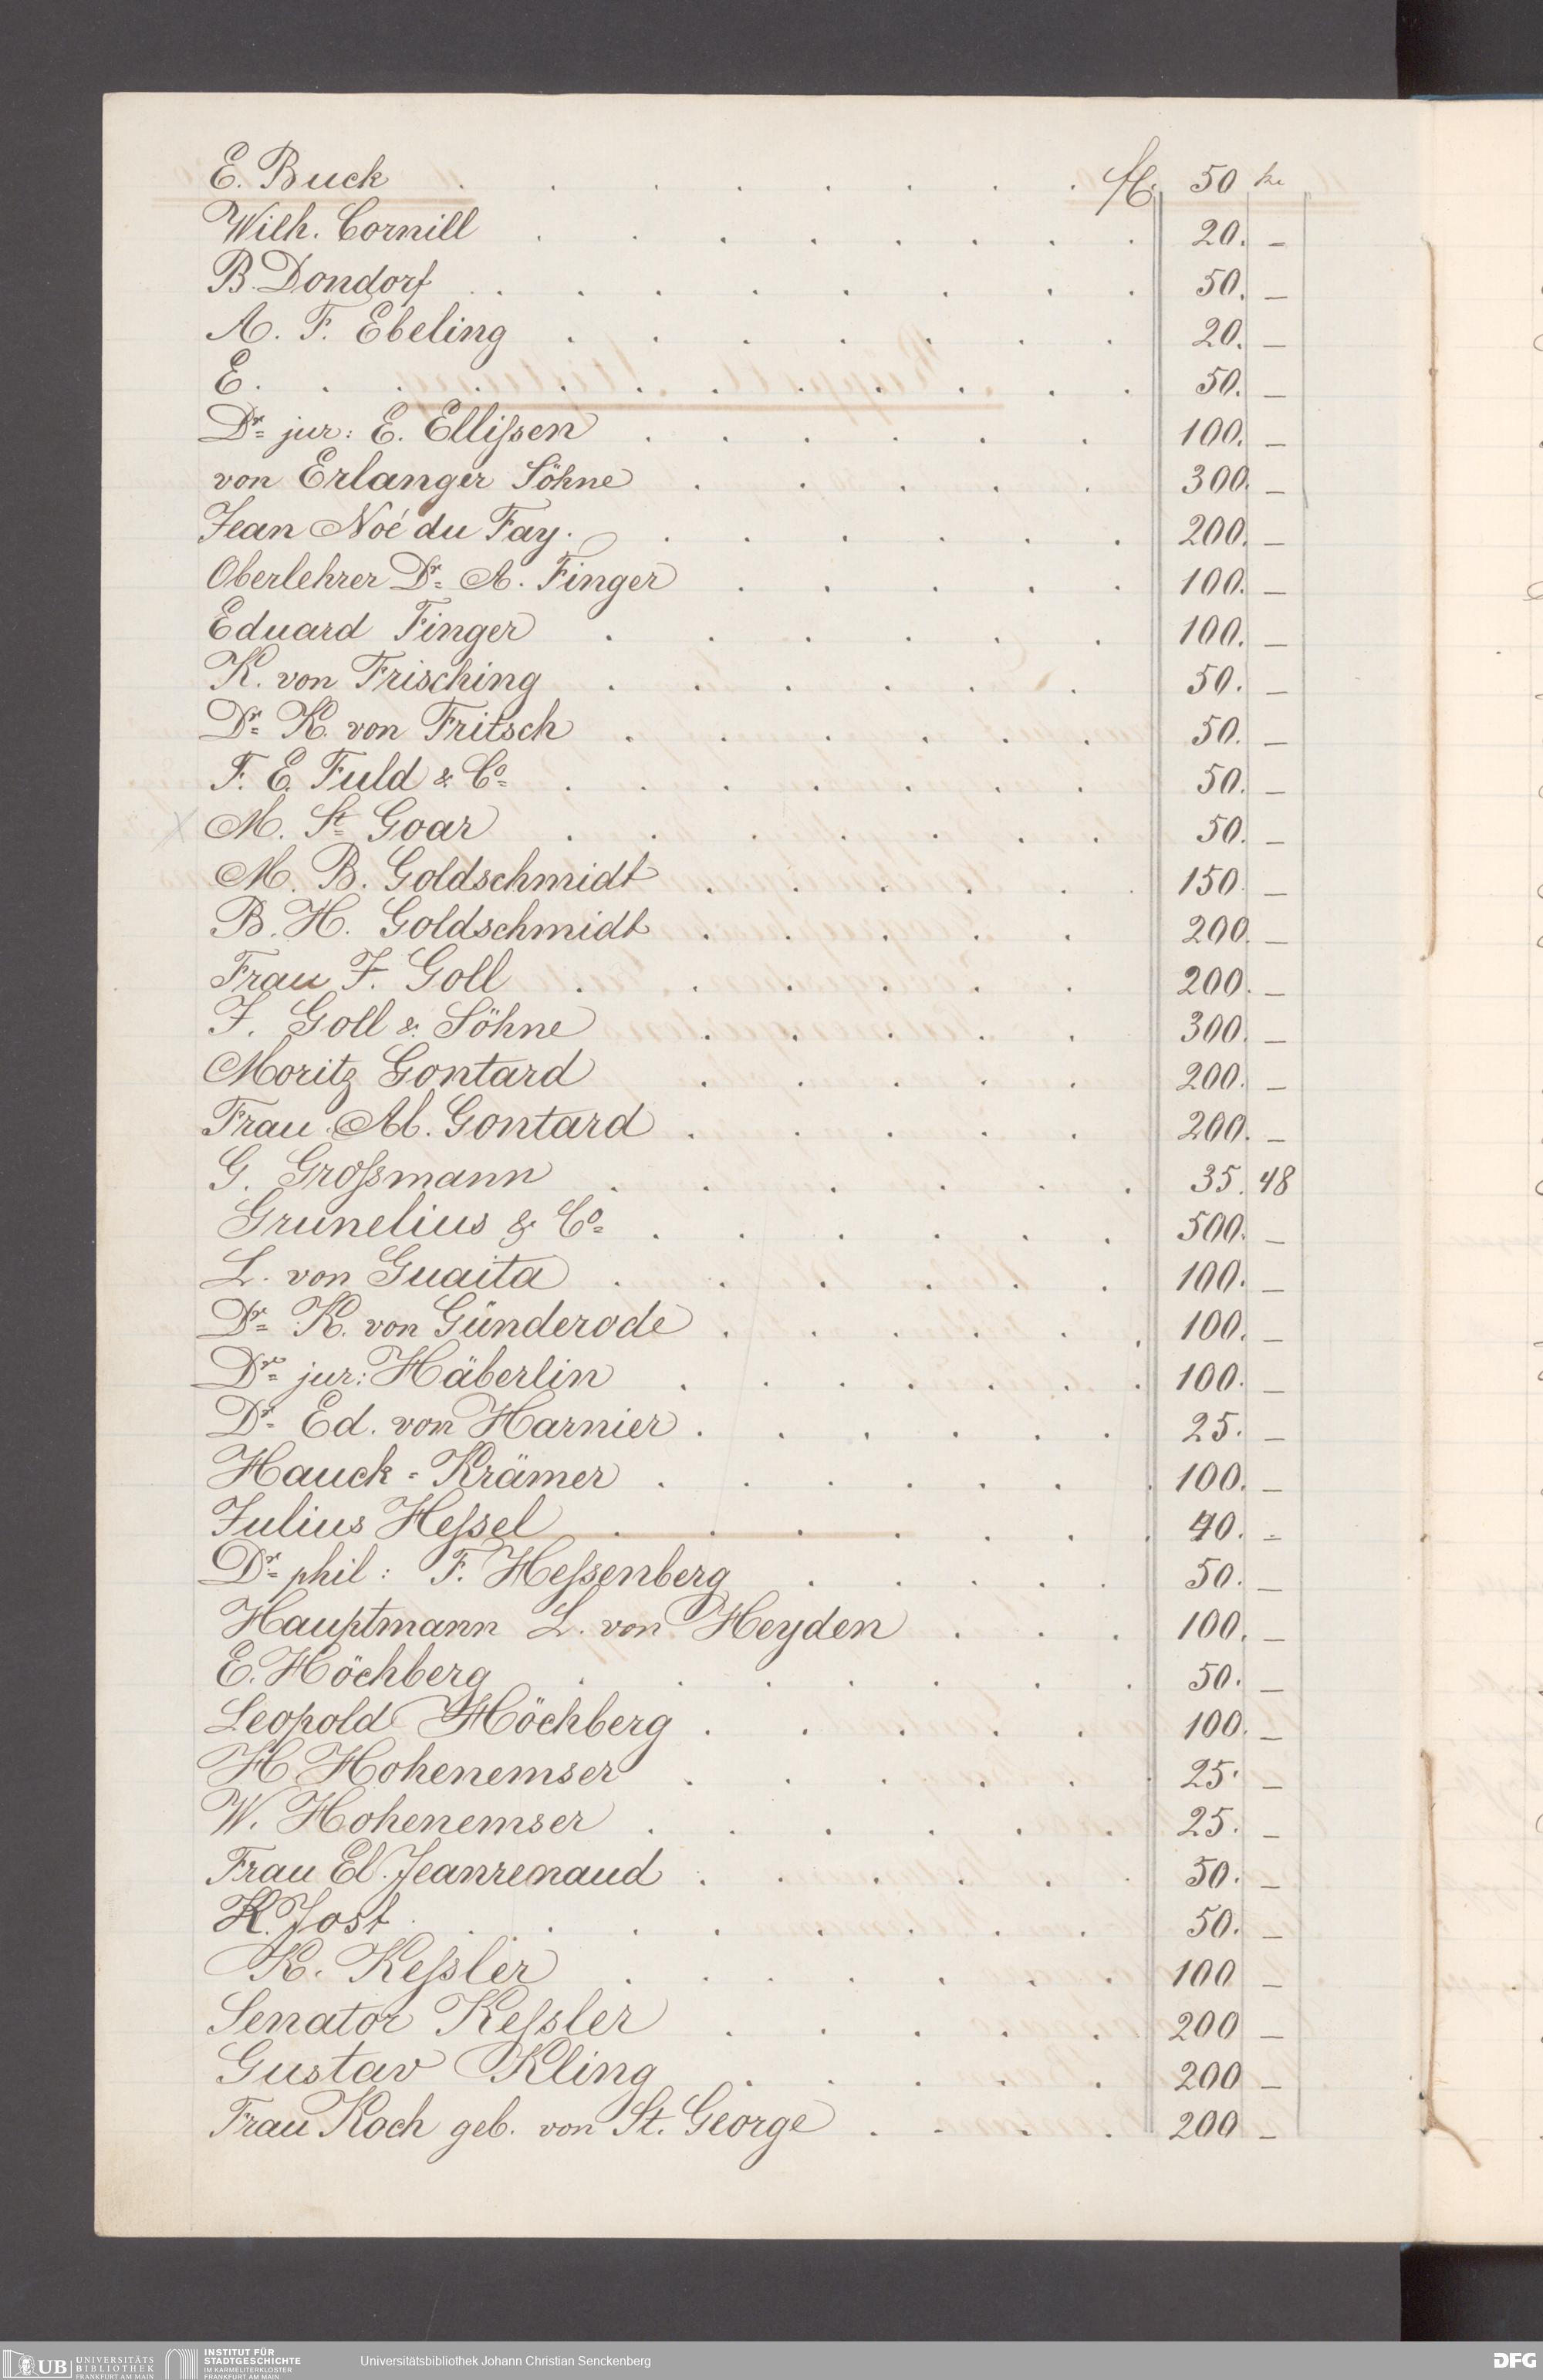 E. Buck . . . . . . . . fl. 50 kr
Wilh. Cornill . . . . . . . . 20. –
B. Dondorf . . . . . . . . 50. –
A. F. Ebeling . . . . . . . 20. –
E. . . . . . . . . . . 50. –
Dr jur: E. Ellißen . . . . . . 100. –
von Erlanger Söhne . . . . . 300. –
Jean Noé du Fay . . . . . . . 200. –
Oberlehrer Dr A. Finger . . . . . 100. –
Eduard Finger . . . . . . 100. –
K. von Frisching . . . . . . 50. –
Dr K. von Fritsch . . . . . . 50. –
F. E. Fuld & Co . . . . . . . 50. –
M. St Goar . . . . . . . 50. –
M. B. Goldschmidt . . . . . . 150. –
B. H. Goldschmidt . . . . . 200. –
Frau F. Goll . . . . . . 200. –
J. Goll & Söhne . . . . . 300. –
Moritz Gontard . . . . . 200. –
Frau M. Gontard . . . . . 200. –
G. Großmann . . . . . . 35. 48
Grunelius & Co . . . . . . 500. –
L. von Guaita . . . . . . 100. –
Dr K. von Günderode . . . . . . 100. –
Dr jur: Häberlin . . . . . . . 100. –
Dr Ed. von Harnier . . . . . . 25. –
Hauck = Krämer . . . . . . . 100. –
Julius Heßel . . . . . . . 40. –
Dr phil: F. Heßenberg . . . . . 50. –
Hauptmann L. von Heyden . . . 100. –
E. Höchberg . . . . . . . 50. –
Leopold Höchberg . . . . . 100. –
H. Hohenemser . . . . . . 25. –
W. Hohenemser . . . . . . 25. –
Frau El. Jeanrenaud . . . . . . 50. –
K. Jost . . . . . . . . 50. –
K. Keßler . . . . . . . 100 –
Senator Keßler . . . . . 200 –
Gustav Kling . . . . . 200 –
Frau Koch geb. von St. George . . . . 200 –
UB UNIVERSITÄTS BIBLIOTHEK FRANKFURT AM MAIN
INSTITUT FÜR STADTGESCHICHTE IM KARMELITERKLOSTER FRANKFURT AM MAIN
Universitätsbibliothek Johann Christian Senckenberg
DFG